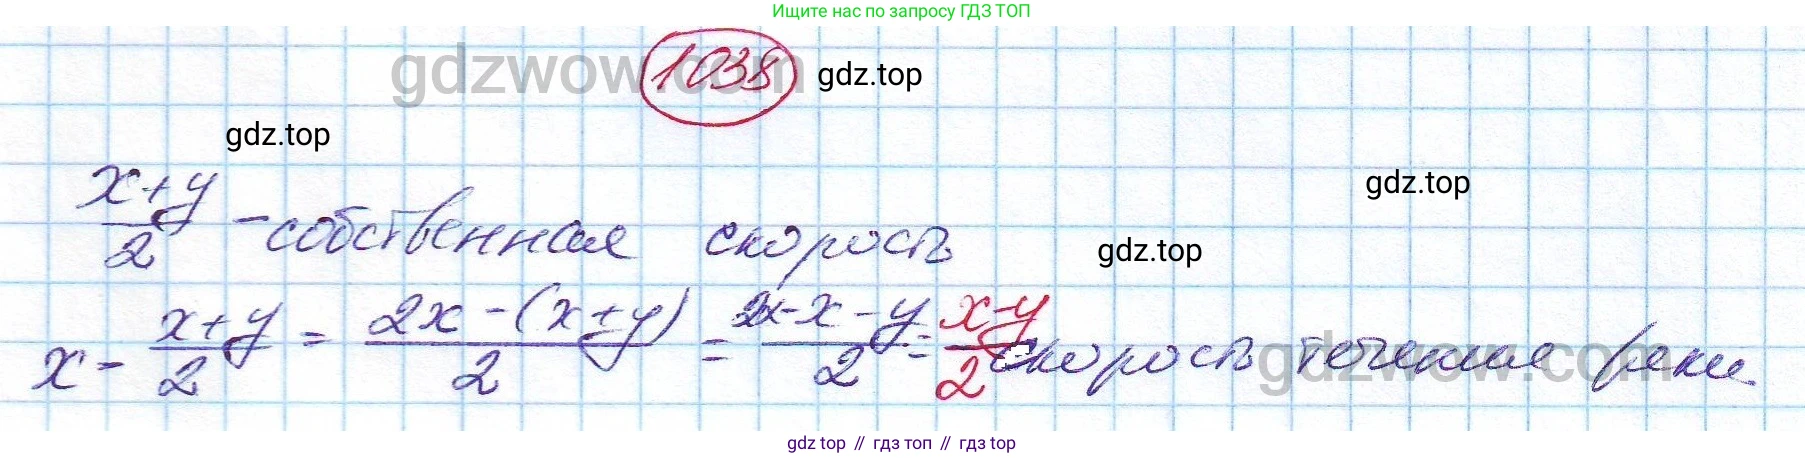 Ищите нас по запросу ГДЗ ТОП
gdzwow.com
1038 gdz.top
gdz.top
gdz.top
x+y/2 - собственная скорость
gdz.top
x - x+y/2 = 2x-(x+y)/2 = 2x-x-y/2 = x-y/2 - скорость течения реки
gdzwow.com
gdz top // гдз топ // gdz top